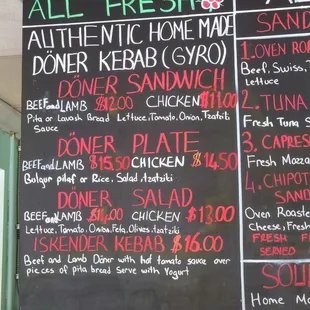 ALL FRESH
AUTHENTIC HOME MADE
DÖNER KEBAB (GYRO)
DÖNER SANDWICH
BEEF and LAMB $12.00 CHICKEN $11.00
Pita or Lavash Bread Lettuce, Tomato, Onion, Tzatziki
Sauce
DÖNER PLATE
BEEF and LAMB $15.50 CHICKEN $14.50
Bulgur pilaf or Rice, Salad, tzatziki
DÖNER SALAD
BEEF and LAMB $14.00 CHICKEN $13.00
Lettuce, Tomato, Onion, Feta, Olives, tzatziki
ISKENDER KEBAB $16.00
Beef and Lamb Döner with hot tomato sauce over
pieces of pita bread Serve with Yogurt
SAND
1. OVEN ROA
Beef, Swiss, T
Lettuce
2. TUNA
Fresh Tuna S
3. CAPRES
Fresh Mozza
4. CHIPOT
SAND
Oven Roaste
Cheese, Fresh
FRESH F
SERVED
SOU
Home Mo